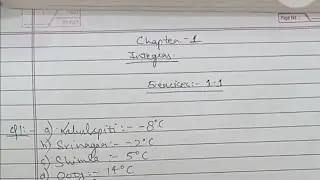 Page No.
Chapter - 1
Integers
Exercises:- 1.1
Q1:- a) Lahulspiti :- -8°C
b) Srinagar :- -2°C
c) Shimla :- 5°C
d) Ooty :- 14°C